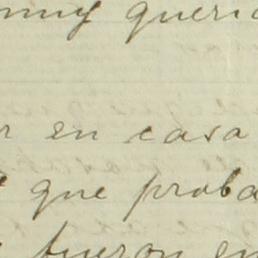 muy queri
r en casa
que proba
fueron en